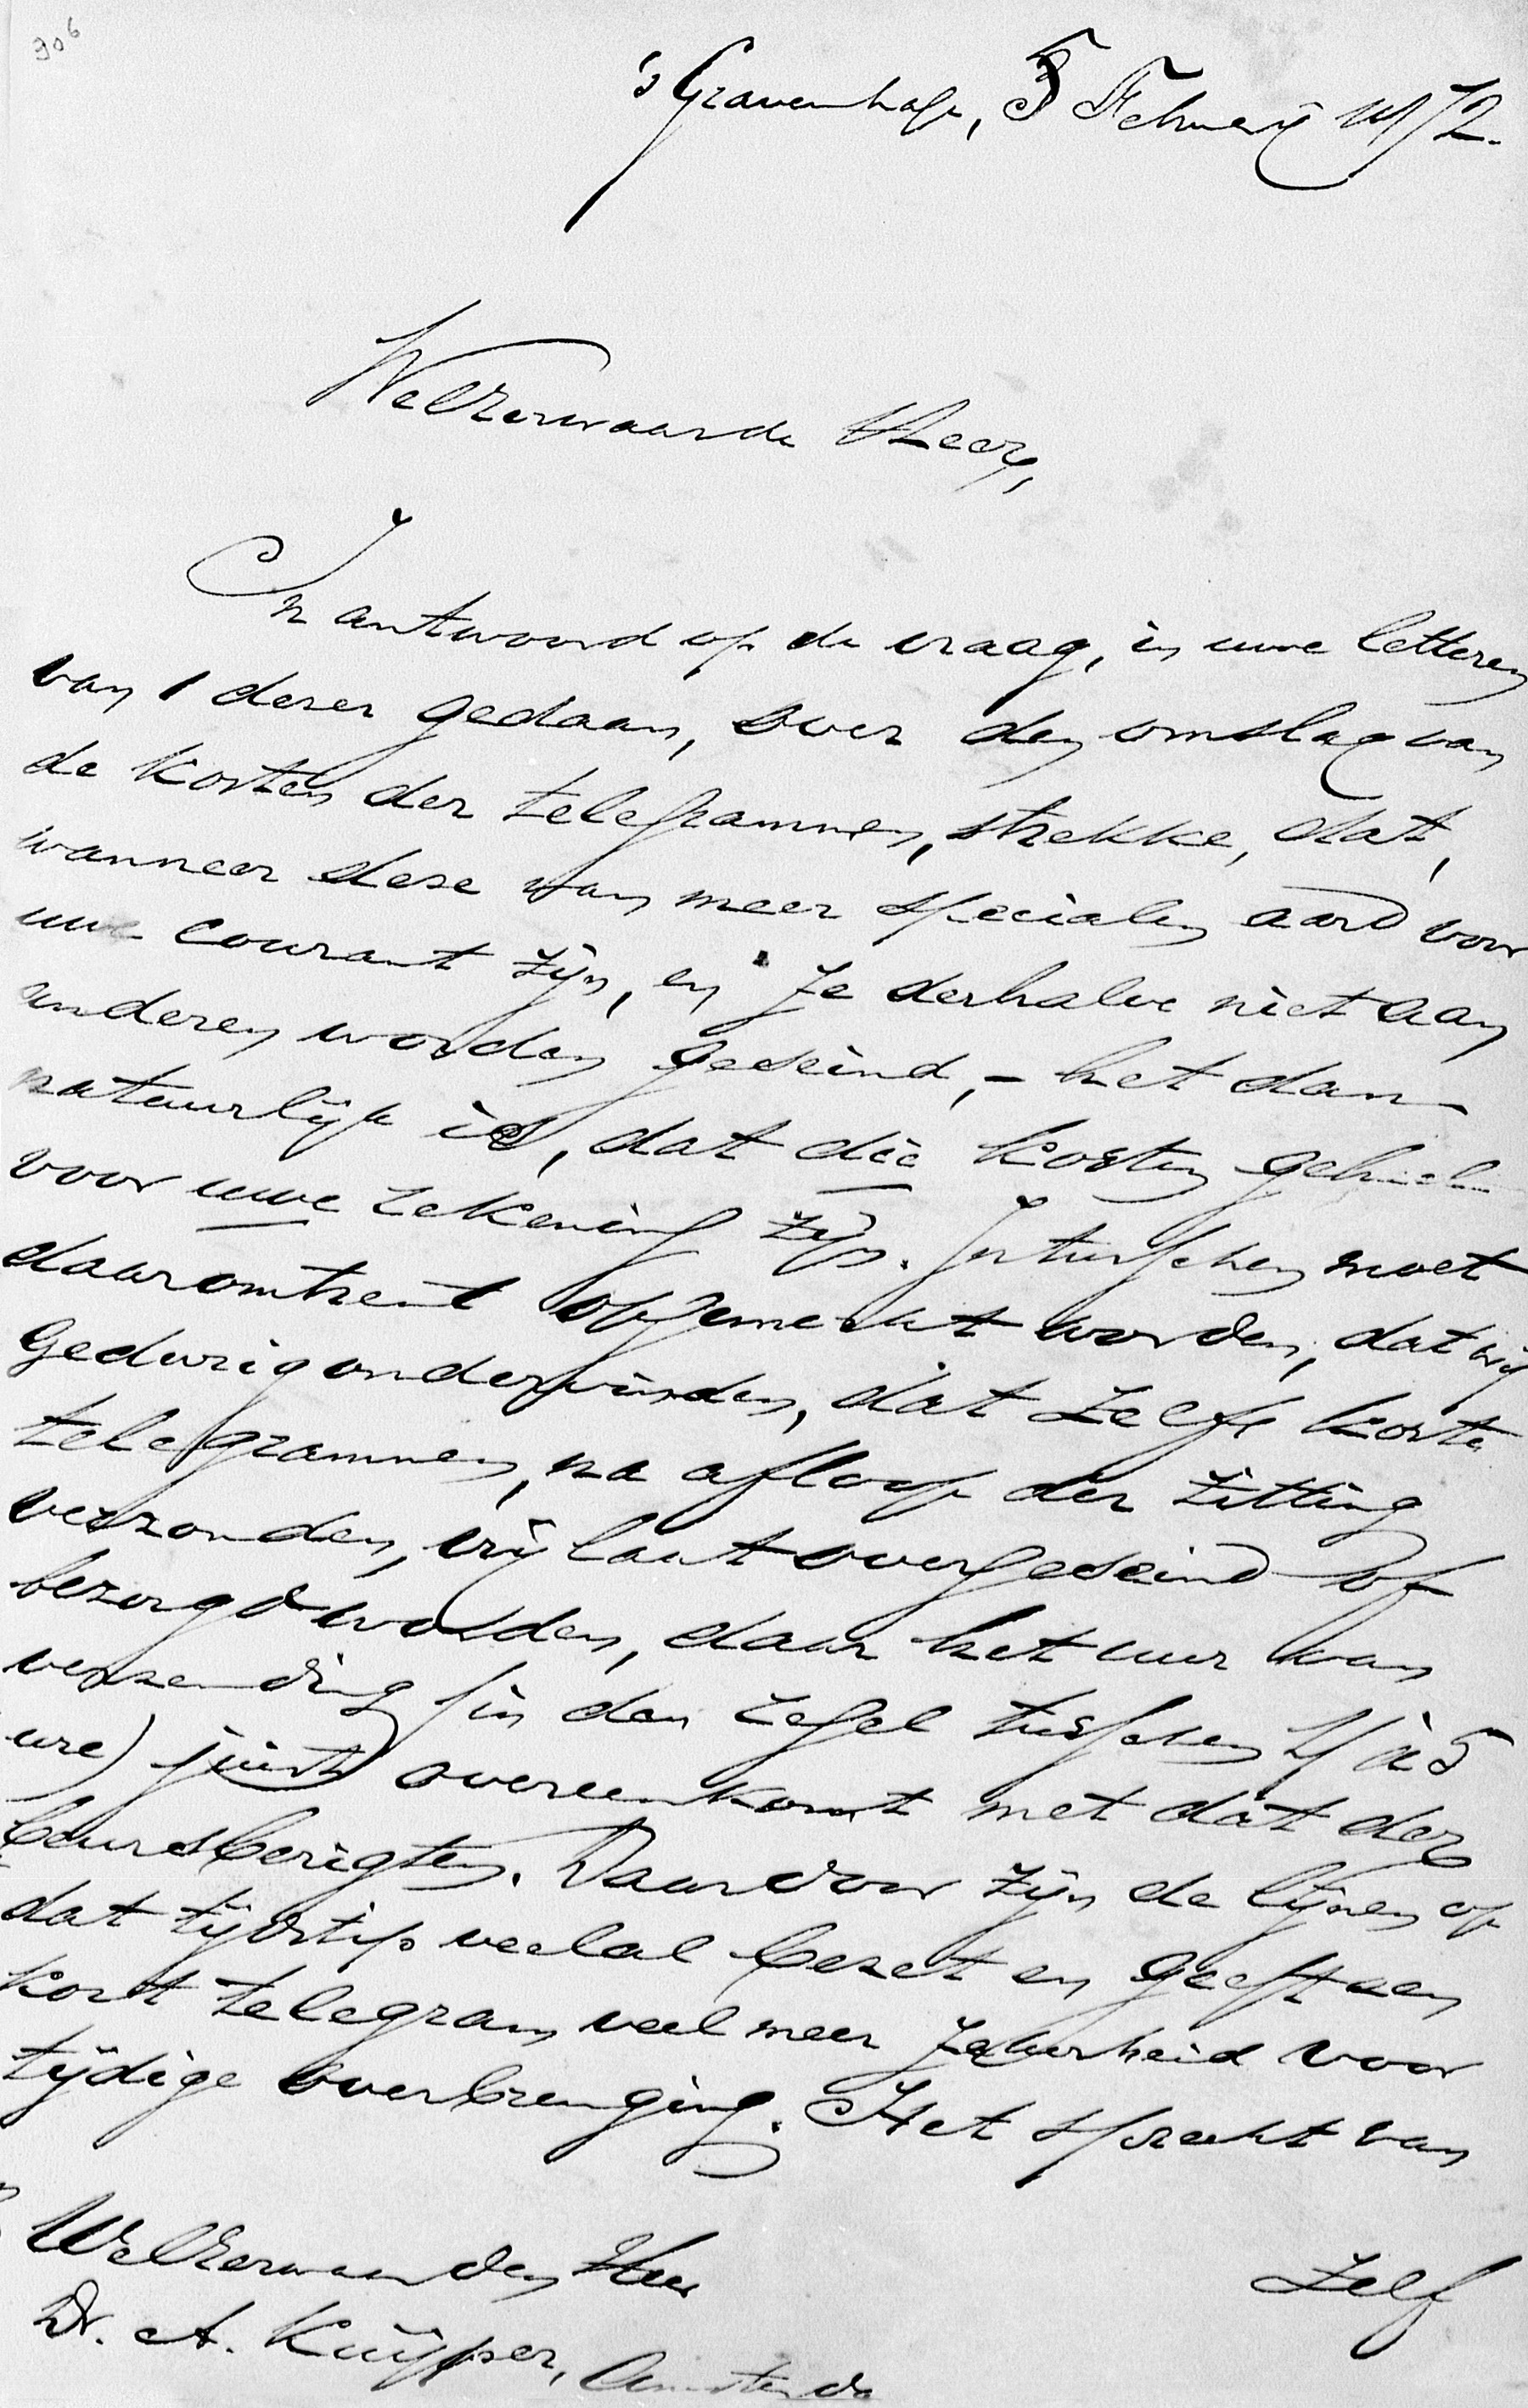 306
's Gravenhage, 5 Februarij 1872.
WelEerwaarde Heer,
In antwoord op de vraag, in uwe letteren
van 1 dezer gedaan, over den omslag van
de kosten der telegrammen, strekke, dat,
wanneer deze van meer specialen aard voor
uwe courant zijn, en ze derhalve niet aan
anderen worden geseind, – het dan
natuurlijk is, dat die kosten geheel
voor uwe rekening zijn. Intusschen moet
daaromtrent opgemerkt worden, dat wij
gedurig ondervinden, dat zelfs korte
telegrammen, na afloop der zitting
verzonden, vrij laat overgeseind of
bezorgd worden, daar het uur van
verzending (in den regel tusschen 4 à 5
ure) juist overeenkomt met dat der
beursberigten. Daardoor zijn de lijnen op
dat tijdstip veelal bezet en geeft een
kort telegram veel meer zekerheid voor
tijdige overbrenging. Het spreekt van
zelf
WelEerwaarden Heer
Dr. A. Kuijper, Amsterdam